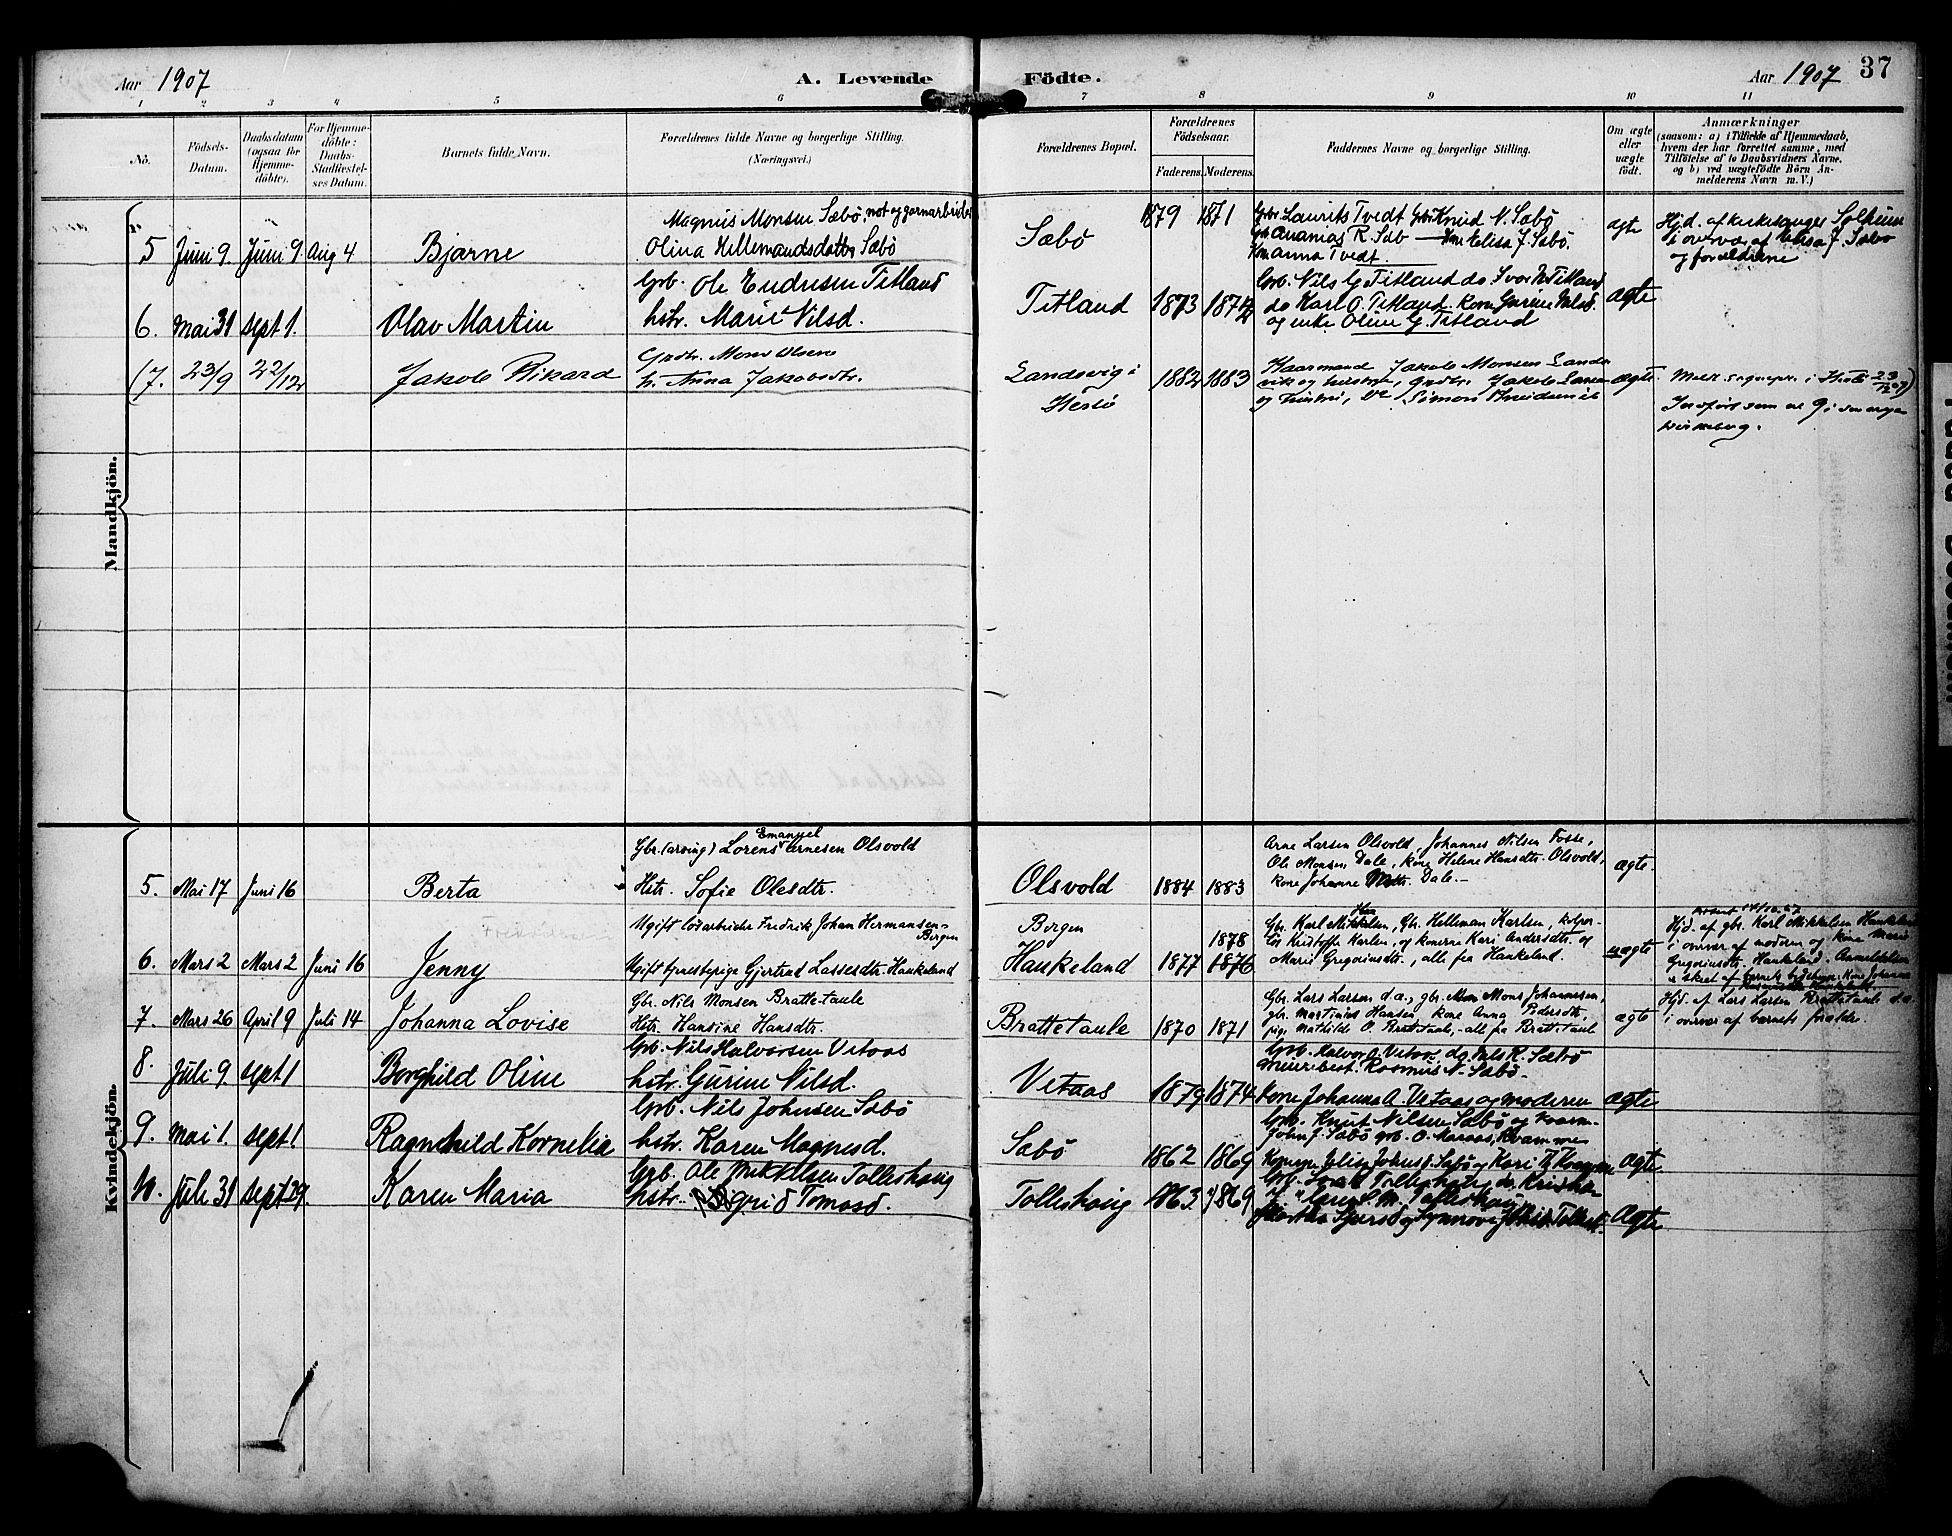 Aar 1907
A. Levende Födte.
Aar 1907 37
1 2 3 4 5 6 7 8 9 10 11
No.
Födsels-
Datum.
Daabsdatum
(ogsaa for
Hjemme-
döbte).
For Hjemme-
döbte:
Daabs-
Stadfæstel-
ses Datum.
Barnets fulde Navn.
Forældrenes fulde Navne og borgerlige Stilling.
(Næringsvei.)
Forældrenes Bopæl.
Forældrenes
Födselsaar.
Faderens. Moderens.
Faddernes Navne og borgerlige Stilling.
Om ægte
eller
uægte
födt.
Anmærkninger
(saasom: a) i Tilfælde af Hjemmedaab,
hvem der har forrettet samme, med
Tilföielse af to Daabsvidners Navne,
og b) ved uægtefödte Börn An-
melderens Navn m. V.)
Mandkjön.
5 Juni 9. Juni 9. Aug 4 Bjarne
Magnus Monsen Sæbö, not og garnarbeider
Olina Hillemandsdatter Sæbö
Sæbö
1879 1871
Gbr Laurits Tvedt Gbr Knud N. Sæbö
Ananias R. Sæb Elisa J. Sæbö.
Anna Tvedt.
ægte
Hjd. af kirkesanger Solheim
i overvær af Elisa J. Sæbö
og forældrene
6. Mai 31 Sept 1. Olav Martin
Grb. Ole Endresen Titland
hstr. Marie Nilsd.
Titland 1873 1874
Grb. Nils G. Titland do Ivar N. Titland
do Karl O. Titland. Kone Gurine Nilsd.
og enke Oline G. Titland
ægte
(7. 23/9 22/12 Jakob Rikard
Grdbr. Mons Olsen
h. Anna Jakobsdtr.
Landsvig i
Herlö
1882 1883
Haarmand Jakob Monsen Lands-
vik og hustru, Grdbr. Jakob Larsen
og hustru, Simon
ægte
i Herlö 23/12 07)
Indfört som no 9 i
Kvindekjön.
5. Mai 17 Juni 16 Berta
Gbr. (arving) Lorens Emanuel Arnesen Olsvold
Hstr. Sofie Olesdtr.
Olsvold 1884 1883
Arne Larsen Olsvold, Johannes Nilsen Fosse,
Ole Monsen Dale, kone Helene Hansdtr. Olsvold,
kone Johanne Dale.
ægte.
6. Mars 2 Mars 2 Juni 16 Jenny
Ugift lösarbeider Fredrik Johan Hermansen-
Bergen
Ugift tjenestepige Gjertrud Lassesdtr. Haukeland
Bergen
Haukeland 1877 1878 1876
Gbr. Karl Mikkelsen, Gbr. Helleman Karlsen, kolpor-
tör Kristoffer Karlsen, og konerne Kari Andersdtr. og
Marie Gregoriusdtr., alle fra Haukeland.
uægte
Hjd. af gbr. Karl Mikkelsen Haukeland
i overvær af moderen og kone Marie
Gregoriusdtr. Haukeland. Anmeldelsen
er skeet af barnets
7. Mars 26 April 9 Juli 14 Johanna Lovise
Gbr. Nils Monsen Brattetaule
Hstr. Hansine Hansdtr.
Brattetaule 1870 1871
Gbr. Lars Larsen d.a., gbr. Mons Johannessen,
gbr. Martinius Hansen, kone Anna Pedersdtr.,
pige Mathilde O. Brattetaule, – alle fra Brattetaule
ægte
Hjd. af Lars Larsen Brattetaule d.a.
i overvær af barnets forældre.
8. Juli 9. Sept 1 Borghild Oline
Grb. Nils Halvorsen Vetaas
hstr. Gurine Nilsd.
Vetaas 1879 1874
Grb. Halvor A. Vetaas, do Nils R. Sæbö
Meieribest. Rasmus N. Sæbö –
Kone Johanna A. Vetaas og moderen
ægte
9. Mai 1. Sept 1 Ragnchild Kornelia
Grb. Nils Johnsen Sæbö
hstr. Karen Magnesd.
Sæbö 1862 1869
Grb. Knut Nilsen Sæbö og
John J. Sæbö grb. O. Maraas, Kvamme
Elisa Johnsd. Sæbö og Kari Kvamme
ægte
10. Juli 31 Sept 29. Karen Maria
Grb. Ole Mikkelsen Tolleshaug
hstr. Sigrid Tomasd.
Tolleshaug 1863. 1869
Martha Sjursd og Synnöve
ægte